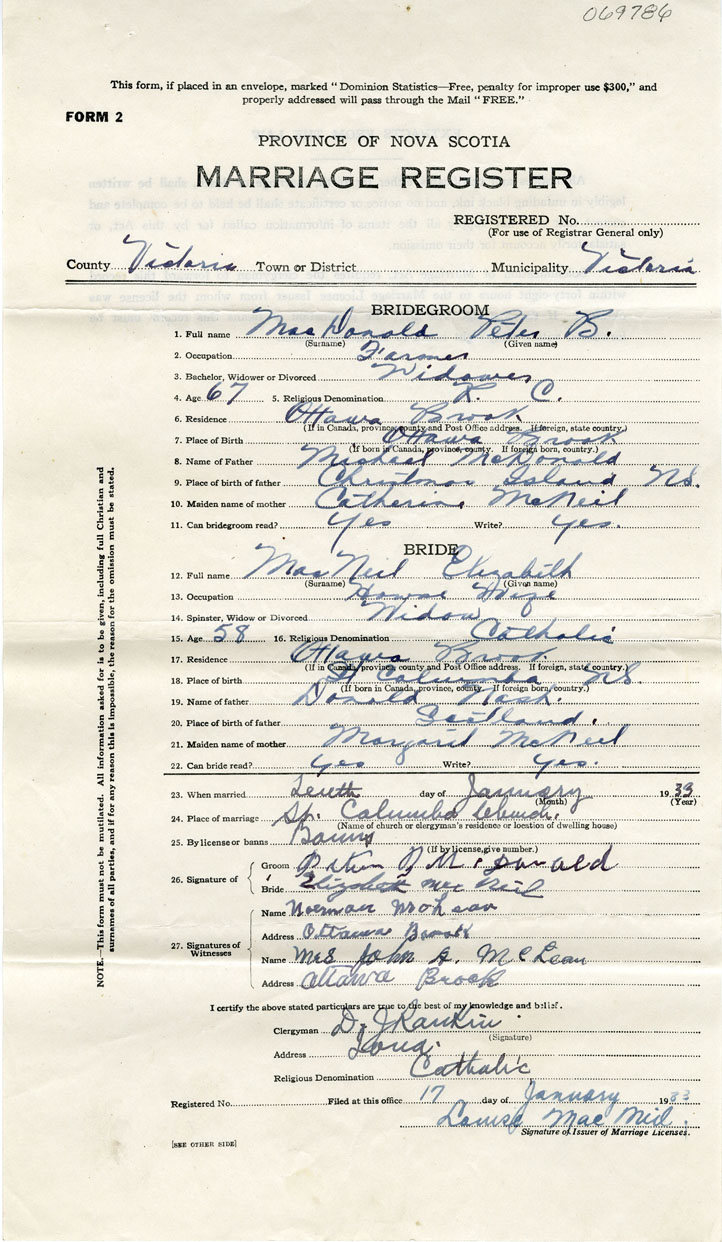 069786
This form, if placed in an envelope, marked "Dominion Statistics—Free, penalty for improper use $300," and
properly addressed will pass through the Mail "FREE."
FORM 2
PROVINCE OF NOVA SCOTIA
MARRIAGE REGISTER
REGISTERED No.
(For use of Registrar General only)
County Victoria Town or District Municipality Victoria
BRIDEGROOM
1. Full name MacDonald Peter B.
(Surname) (Given name)
2. Occupation Farmer
3. Bachelor, Widower or Divorced Widower
4. Age 67 5. Religious Denomination R. C.
6. Residence Ottawa Brook
(If in Canada, province, county and Post Office address. If foreign, state country.)
7. Place of Birth Ottawa Brook
(If born in Canada, province, county. If foreign born, country.)
8. Name of Father Michael McDonald
9. Place of birth of father Christmas Island NS.
10. Maiden name of mother Catherine McNeil
11. Can bridegroom read? Yes Write? yes.
BRIDE
12. Full name MacNeil Elizabeth
(Surname) (Given name)
13. Occupation House Wife
14. Spinster, Widow or Divorced Widow
15. Age 58 16. Religious Denomination Catholic
17. Residence Ottawa Brook
(If in Canada, province, county and Post Office address. If foreign, state country.)
18. Place of birth St Columba NS.
(If born in Canada, province, county. If foreign born, country.)
19. Name of father Donald Nash.
20. Place of birth of father Scotland.
21. Maiden name of mother Margaret McNeil
22. Can bride read? Yes Write? yes.
23. When married Tenth day of January 1933
(Month) (Year)
24. Place of marriage St. Columba Church.
(Name of church or clergyman's residence or location of dwelling house)
25. By license or banns Banns
(If by license, give number.)
26. Signature of
Groom McDonald
Bride Elizabeth Mac Neil
27. Signatures of Witnesses
Name Norman
Address Ottawa Brook
Name Mrs John A. McLean
Address Ottawa Brook
I certify the above stated particulars are true to the best of my knowledge and belief.
Clergyman D. J Rankin
(Signature)
Address Iona.
Religious Denomination Catholic
Registered No. Filed at this office 17 day of January 1933
Louise MacNeil.
Signature of Issuer of Marriage Licenses.
[SEE OTHER SIDE]
NOTE.—This form must not be mutilated. All information asked for is to be given, including full Christian and
surnames of all parties, and if for any reason this is impossible, the reason for the omission must be stated.